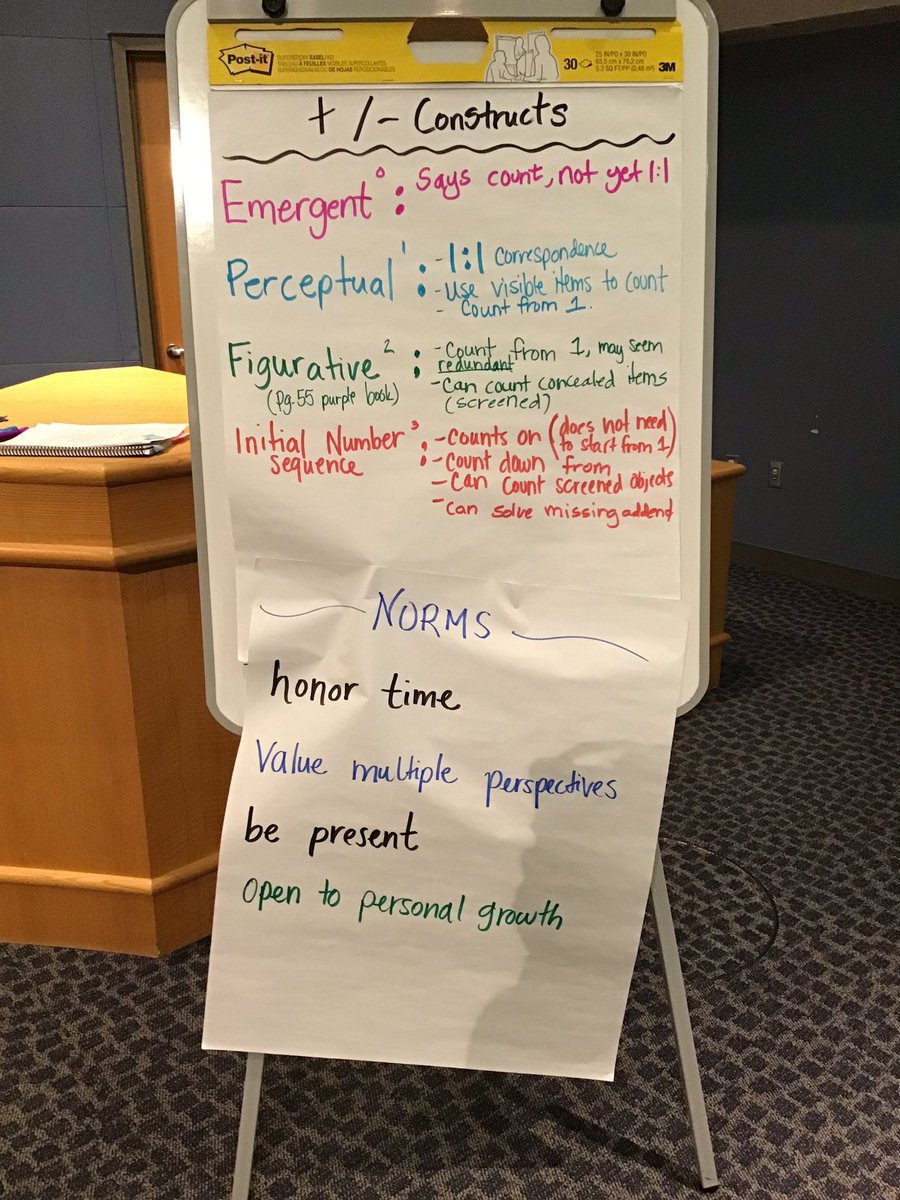 Post-it
SUPERSTICKY EASEL PAD
TABLEAU À FEUILLES MOBILES SUPERCOLLANTES
30
25 IN/PO x 30 IN/PO
63,5 cm x 76,2 cm
5.2 SQ FT/PP (0,48 m²)
3M
+ / - Constructs
Emergent 0 : Says count, not yet 1:1
Perceptual 1 : - 1:1 correspondence
- Use visible items to count
- Count from 1.
Figurative 2 : - Count from 1, may seem
redundant
(pg. 55 purple book) - Can count concealed items
(screened)
Initial Number 3 : - Counts on (does not need
sequence to start from 1)
- Count down from
- Can count screened objects
- can solve missing addend
NORMS
honor time
Value multiple perspectives
be present
Open to personal growth